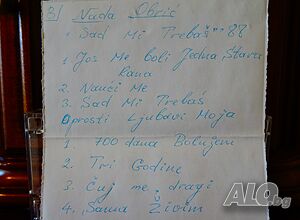 3/ Nada Obrić
1. Sad Mi Trebaš '88
1. Jos Me boli Jedna Stara
Rana
2. Nauči Me
3. Sad Mi Trebaš
Oprosti Ljubavi Moja
1. 700 dana Bolujem
2. Tri Godine
3. Čuj me, dragi
4. Sama Živim
ALO.bg